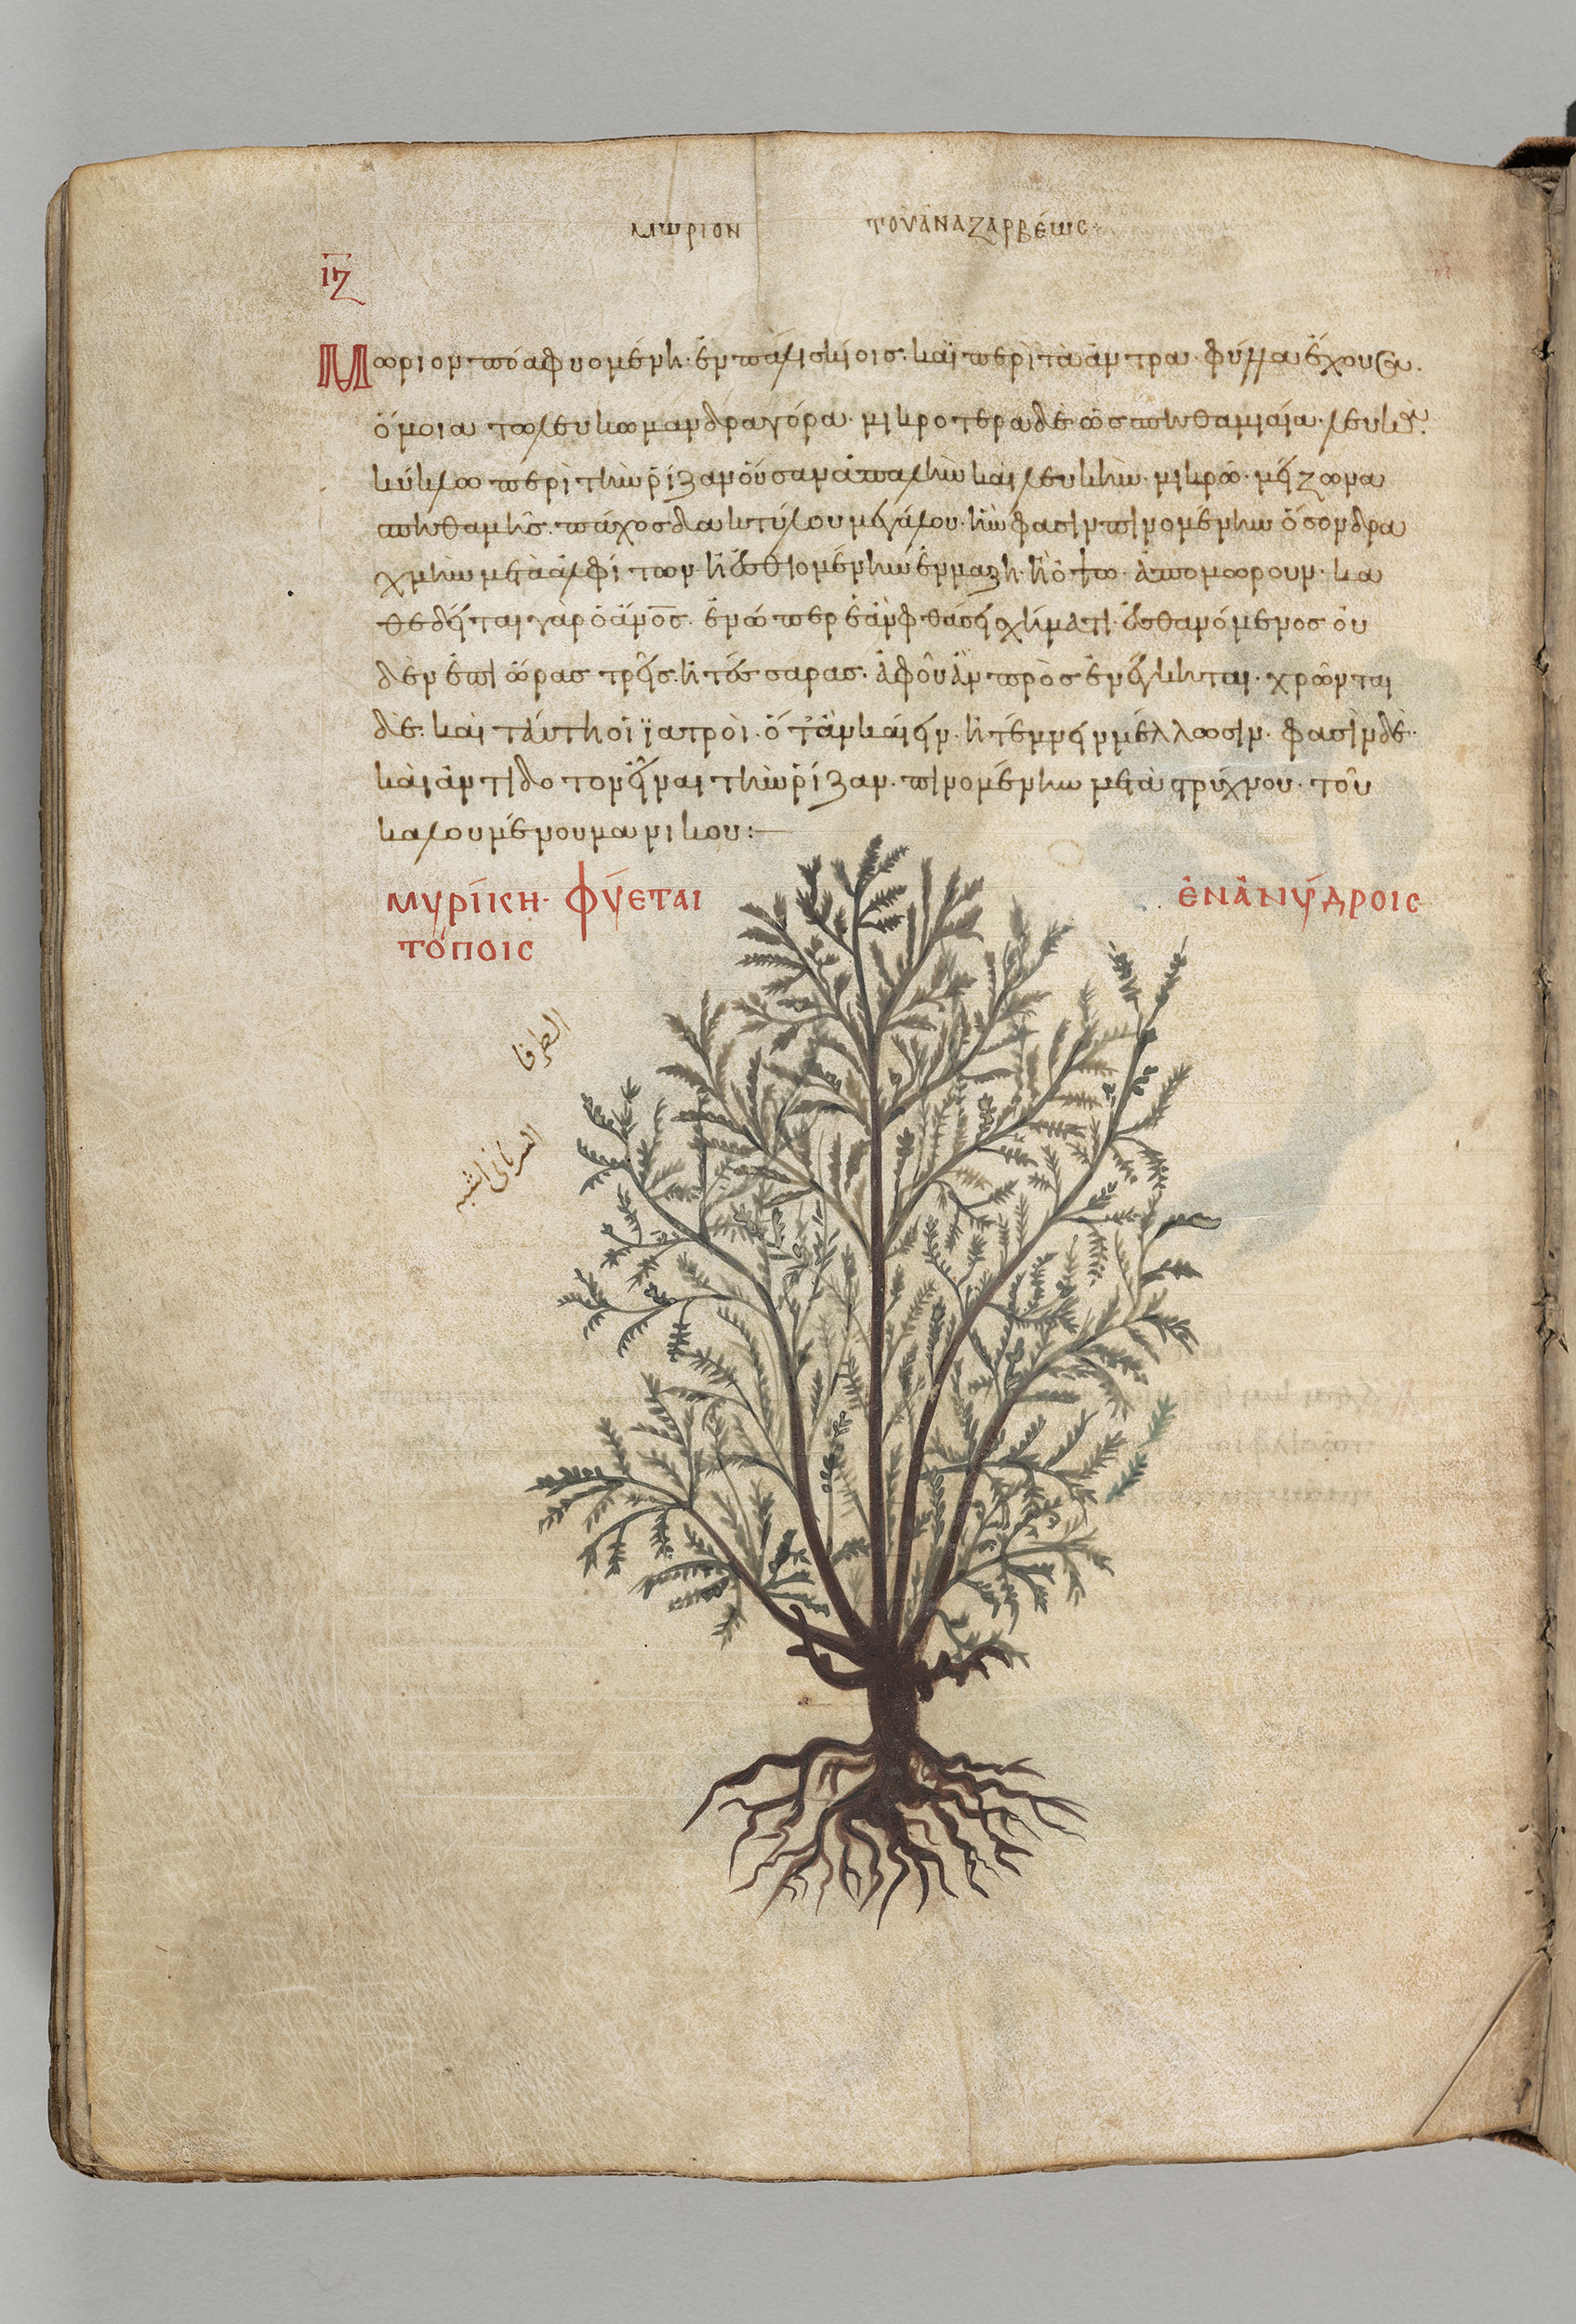 μωριον τοῦ ἀναζαρβέως
ιζ
Μώριον πόα φυομένη· ἐν παλισκίοις· καὶ περὶ τὰ ἄντρα· φύλλα ἔχουσα·
ὅμοια τῶ λευκῶ μανδραγόρα· μικρότερα δὲ ὡς σπιθαμιαία· λευκὰ·
κύκλω περὶ τὴν ῥίζαν οὖσαν ἁπαλὴν καὶ λευκὴν· μικρῶ· μείζωνα
σπηθαμῆς· πάχος δακτύλου μεγάλου· ἣν φασὶν πινομένην ὅσον δρα
χμὴν μετὰ ἀλφίτων· ἢ ἐσθιομένην ἐν μάζη· ἢ ὄψω· ἀπομωροῦν· κα
θεύδει ται γὰρ ὁ ἄνος· ἐν ὧπερ ἐὰν φθάσει σχήματι· ἐσθανόμενος οὐ
δὲν ἐπὶ ὥρας τρεῖς· ἢ τέσσαρας· ἀφ οὗ ἂν προσενέγκηται· χρῶνται
δὲ καὶ ταύτη οἱ ϊατροὶ· ὅταν καίειν· ἢ τέμνειν μέλλωσιν· φασὶν δὲ·
καὶ ἀντίδοτον εἶναι τὴν ῥίζαν· πινομένην μετὰ στρύχνου· τοῦ
καλουμένου μανικου:—
μυρίκη· φύεται ἐν ἀνύδροις
τόποις
الطرفا